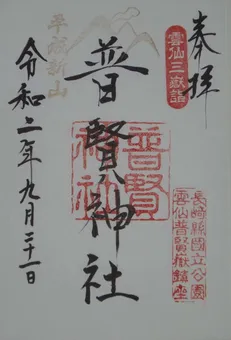 奉拝
雲仙三嶽詣
普賢神社
普賢
神社
長崎縣國立公園
雲仙普賢嶽鎮座
平成新山
令和二年九月二十一日